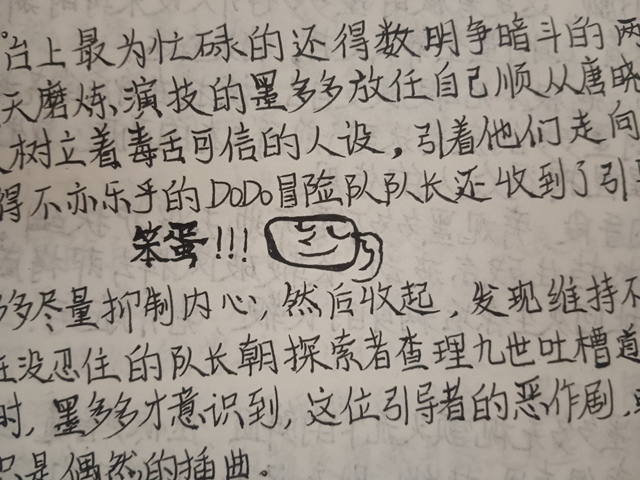 台上最为忙碌的还得数明争暗斗的两
天磨炼演技的墨多多放任自己顺从唐晓
树立着毒舌可信的人设，引着他们走向
得不亦乐乎的DODO冒险队队长还收到了引
笨蛋!!!
多尽量抑制内心，然后收起，发现维持不
在没忍住的队长朝探索者查理九世吐槽道
时，墨多多才意识到，这位引导者的恶作剧，
只是偶然的插曲。